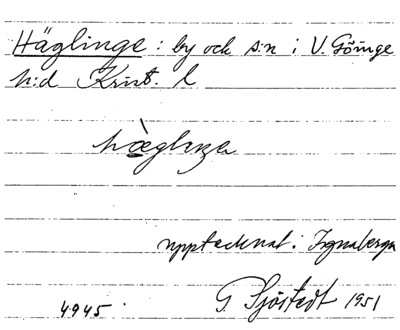 Häglinge: by och s:n i V. Göinge
h:d Krist. l
hæ̀glıŋe
upptecknat i Ignaberga
G. Sjöstedt 1951
4945